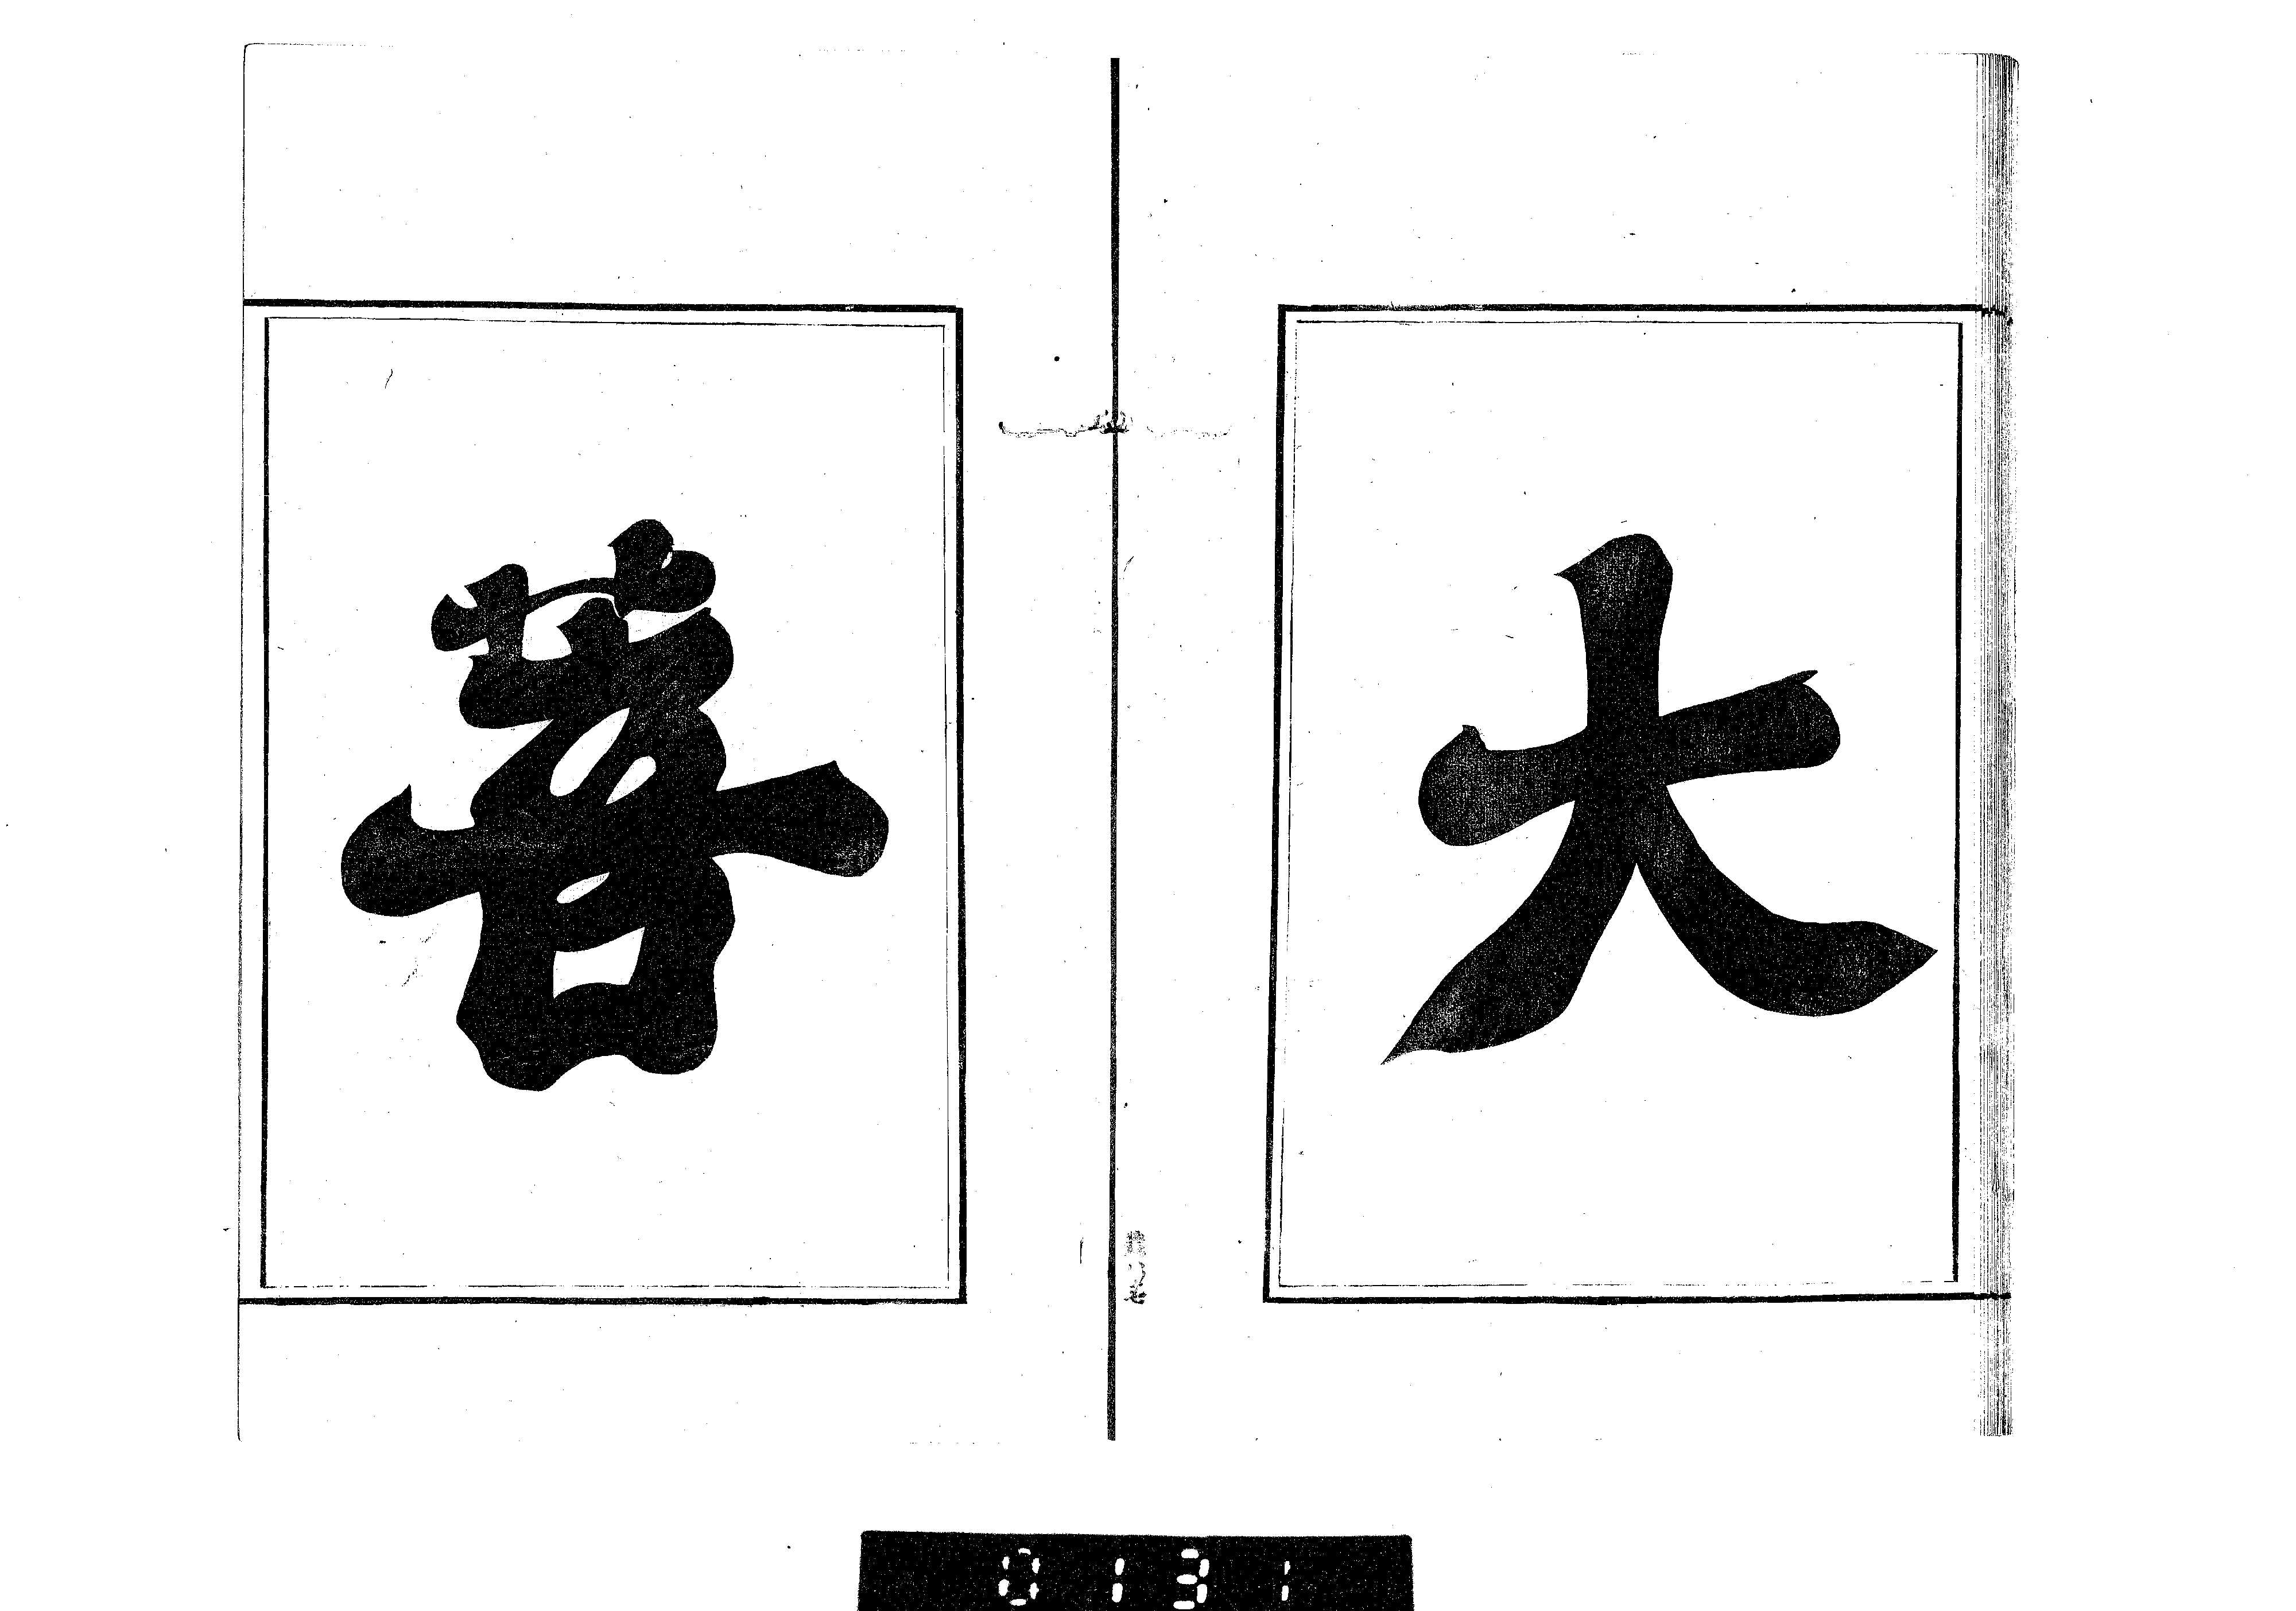 大
菩
0131